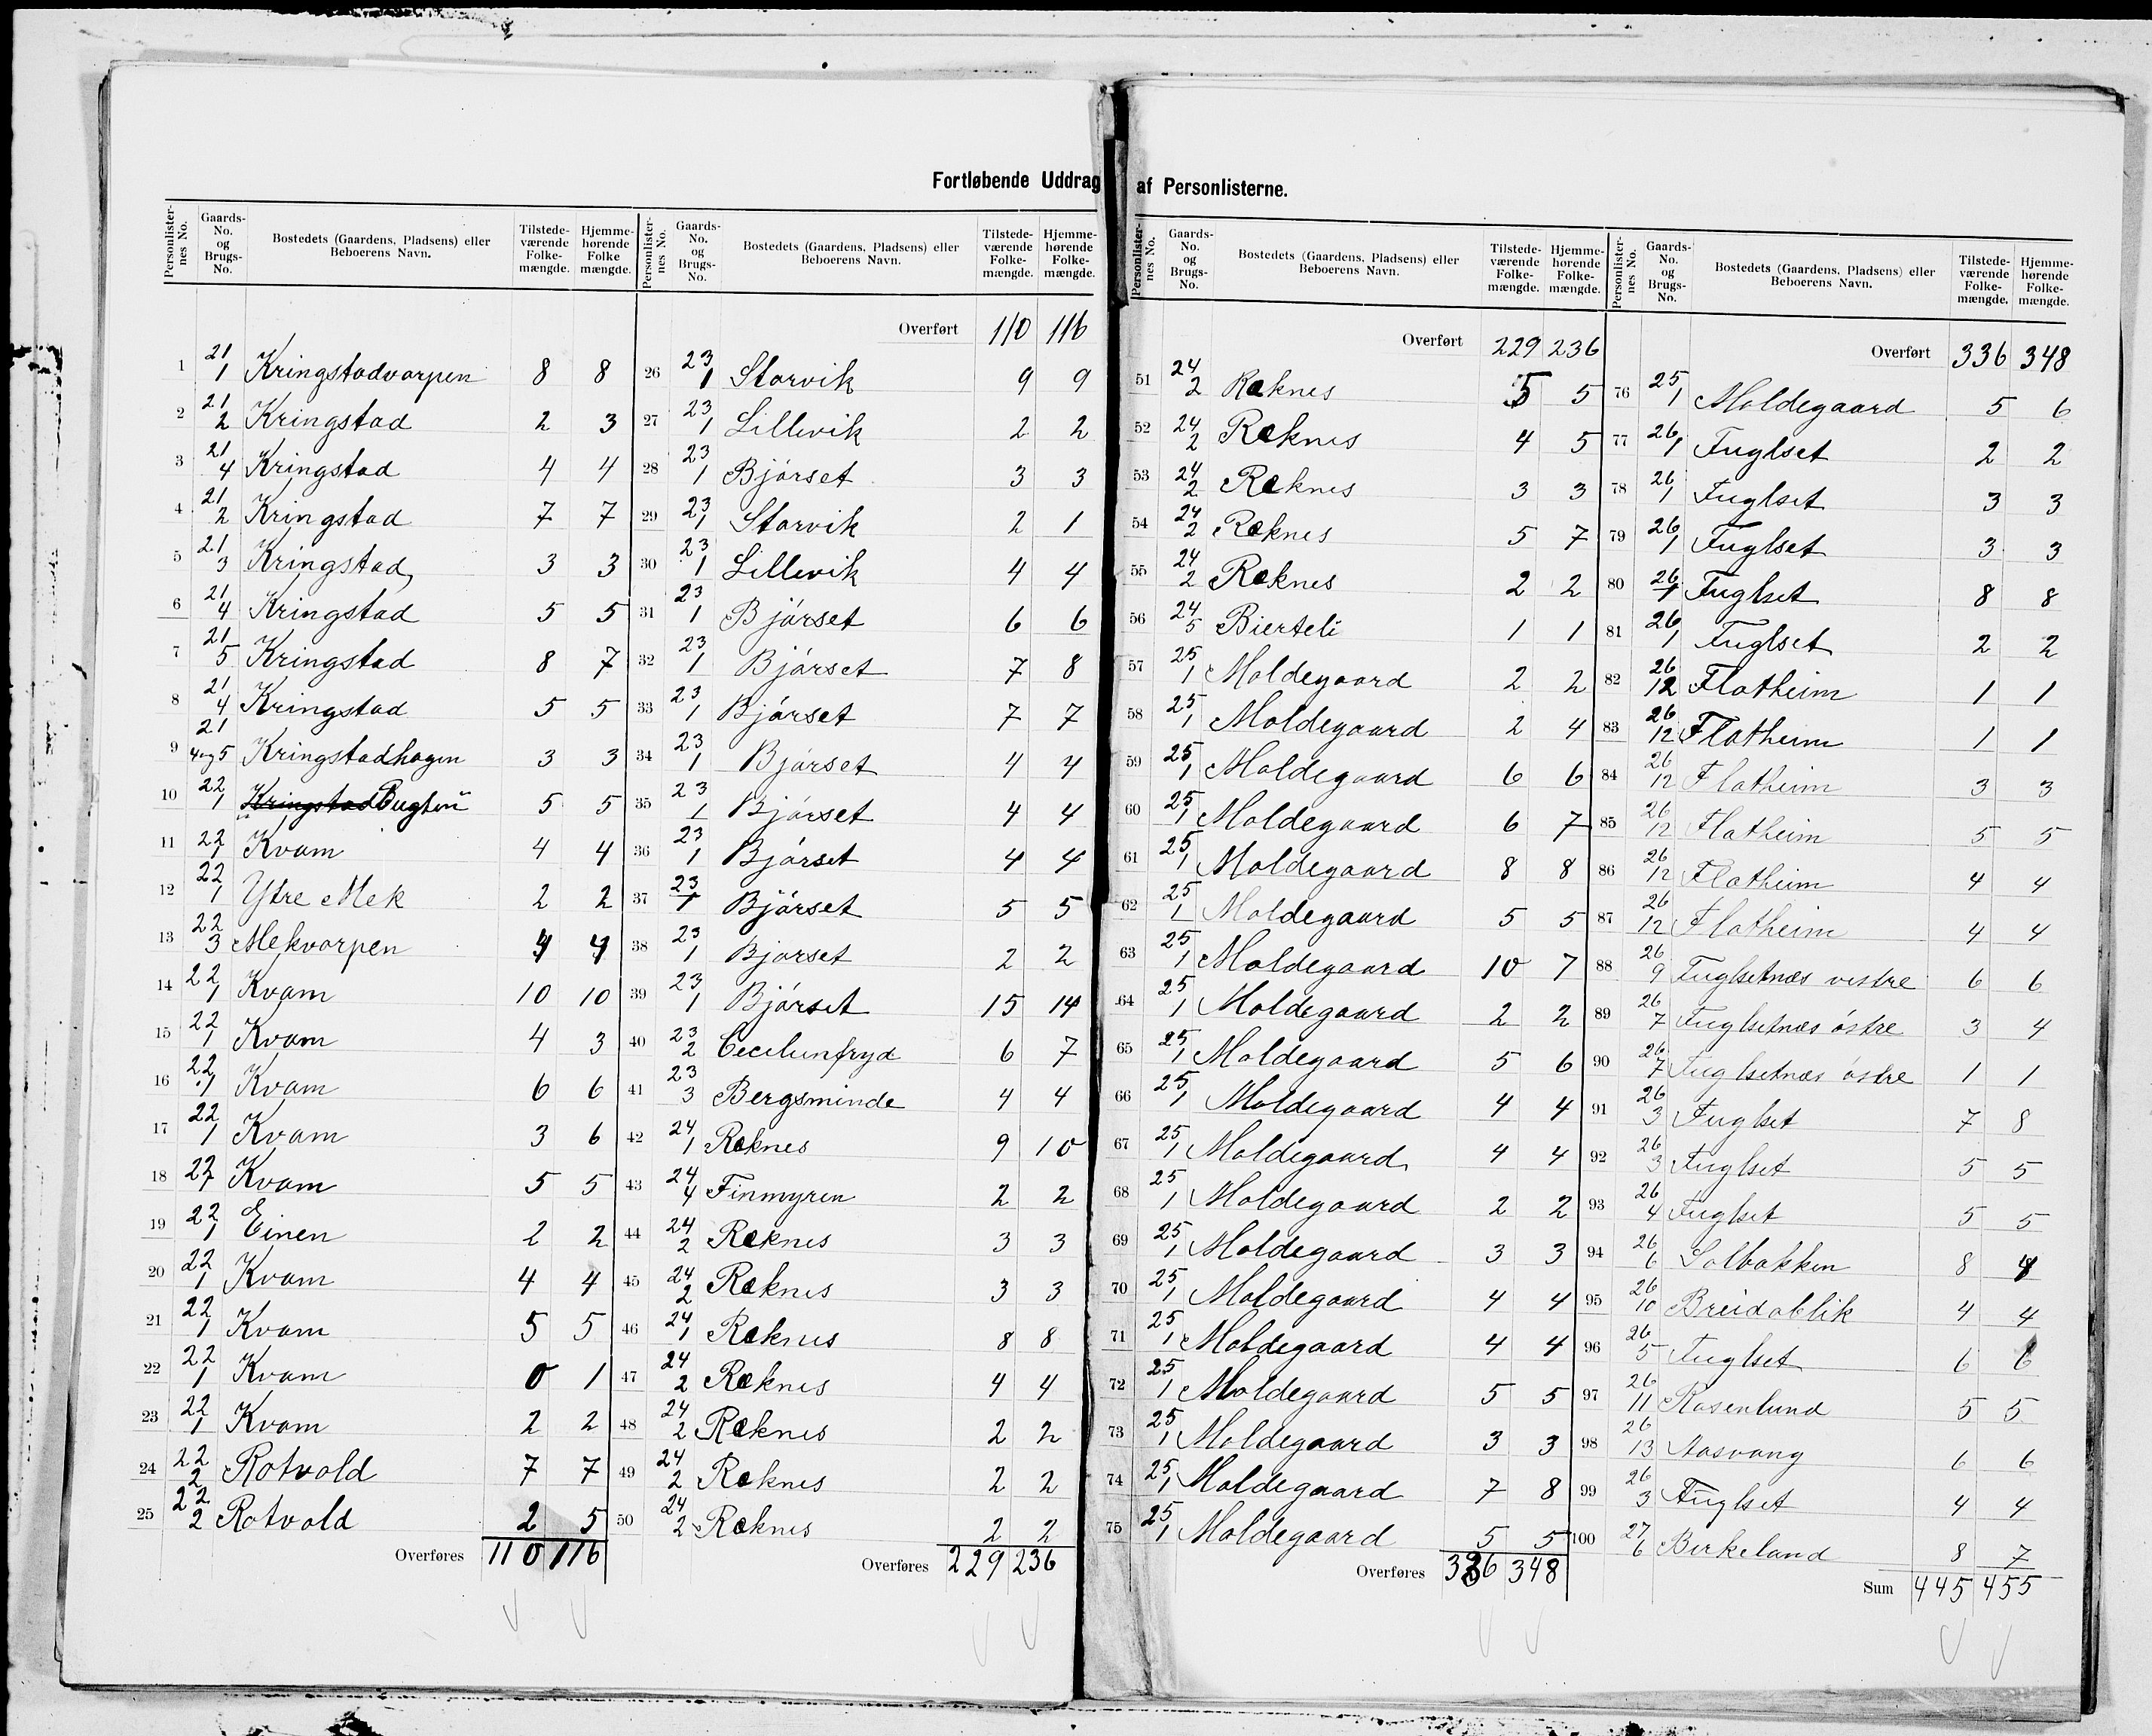 Fortløbende Uddrag af Personlisterne.
Personlisternes No. Gaards-No. og Brugs-No. Bostedets (Gaardens, Pladsens) eller Beboerens Navn. Tilstedeværende Folkemængde. Hjemmehørende Folkemængde.
1 21/1 Kringstadvorpen 8 8
2 21/2 Kringstad 2 3
3 21/4 Kringstad 4 4
4 21/2 Kringstad 7 7
5 21/3 Kringstad 3 3
6 21/4 Kringstad 5 5
7 21/5 Kringstad 8 7
8 21/4 Kringstad 5 5
9 21/4og5 Kringstadhagen 3 3
10 22/1 Kringstad 5 5
11 22/1 Kvam 4 4
12 22/1 Ytre Mek 2 2
13 22/3 Mekvorpen 4 4
14 22/1 Kvam 10 10
15 22/1 Kvam 4 3
16 22/1 Kvam 6 6
17 22/1 Kvam 3 6
18 22/1 Kvam 5 5
19 22/1 Einen 2 2
20 22/1 Kvam 4 4
21 22/1 Kvam 5 5
22 22/1 Kvam 0 1
23 22/1 Kvam 2 2
24 22/2 Rotvold 7 7
25 22/2 Rotvold 2 5
Overføres 110 116
Personlisternes No. Gaards-No. og Brugs-No. Bostedets (Gaardens, Pladsens) eller Beboerens Navn. Tilstedeværende Folkemængde. Hjemmehørende Folkemængde.
Overført 110 116
26 23/1 Storvik 9 9
27 23/1 Lillevik 2 2
28 23/1 Bjórset 3 3
29 23/1 Storvik 2 1
30 23/1 Lillevik 4 4
31 23/1 Bjórset 6 6
32 23/1 Bjórset 7 8
33 23/1 Bjórset 7 7
34 23/1 Bjórset 4 4
35 23/1 Bjórset 4 4
36 23/1 Bjórset 4 4
37 23/1 Bjórset 5 5
38 23/1 Bjórset 2 2
39 23/1 Bjórset 15 14
40 23/2 Cecilienfryd 6 7
41 23/3 Bergsminde 4 4
42 24/1 Ræknes 9 10
43 24/4 Finmyren 2 2
44 24/2 Ræknes 3 3
45 24/2 Ræknes 3 3
46 24/1 Ræknes 8 8
47 24/2 Ræknes 4 4
48 24/2 Ræknes 2 2
49 24/2 Ræknes 2 2
50 24/2 Ræknes 2 2
Overføres 229 236
Personlisternes No. Gaards-No. og Brugs-No. Bostedets (Gaardens, Pladsens) eller Beboerens Navn. Tilstedeværende Folkemængde. Hjemmehørende Folkemængde.
Overført 229 236
51 24/2 Ræknes 5 5
52 24/2 Ræknes 4 5
53 24/2 Ræknes 3 3
54 24/2 Ræknes 5 7
55 24/2 Ræknes 2 2
56 24/5 Bierteli 1 1
57 25/1 Moldegaard 2 2
58 25/1 Moldegaard 2 4
59 25/1 Moldegaard 6 6
60 25/1 Moldegaard 6 7
61 25/1 Moldegaard 8 8
62 25/1 Moldegaard 5 5
63 25/1 Moldegaard 10 7
64 25/1 Moldegaard 2 2
65 25/1 Moldegaard 5 6
66 25/1 Moldegaard 4 4
67 25/1 Moldegaard 4 4
68 25/1 Moldegaard 2 2
69 25/1 Moldegaard 3 3
70 25/1 Moldegaard 4 4
71 25/1 Moldegaard 4 4
72 25/1 Moldegaard 5 5
73 25/1 Moldegaard 3 3
74 25/1 Moldegaard 7 8
75 25/1 Moldegaard 5 5
Overføres 336 348
Personlisternes No. Gaards-No. og Brugs-No. Bostedets (Gaardens, Pladsens) eller Beboerens Navn. Tilstedeværende Folkemængde. Hjemmehørende Folkemængde.
Overført 336 348
76 25/1 Moldegaard 5 6
77 26/1 Fuglset 2 2
78 26/1 Fuglset 3 3
79 26/1 Fuglset 3 3
80 26/1 Fuglset 8 8
81 26/1 Fuglset 2 2
82 26/12 Flatheim 1 1
83 26/12 Flatheim 1 1
84 26/12 Flatheim 3 3
85 26/12 Flatheim 5 5
86 26/12 Flatheim 4 4
87 26/12 Flatheim 4 4
88 26/9 Fuglsetnæs vestre 6 6
89 26/7 Fuglsetnæs óstre 3 4
90 26/7 Fuglsetnæs óstre 1 1
91 26/3 Fuglset 7 8
92 26/3 Fuglset 5 5
93 26/4 Fuglset 5 5
94 26/6 Solbakken 8
95 26/10 Breidablik 4 4
96 26/5 Fuglset 6 6
97 26/11 Rosenlund 5 5
98 26/13 Aasvang 6 6
99 26/3 Fuglset 4 4
100 27/6 Birkeland 8 7
Sum 445 455